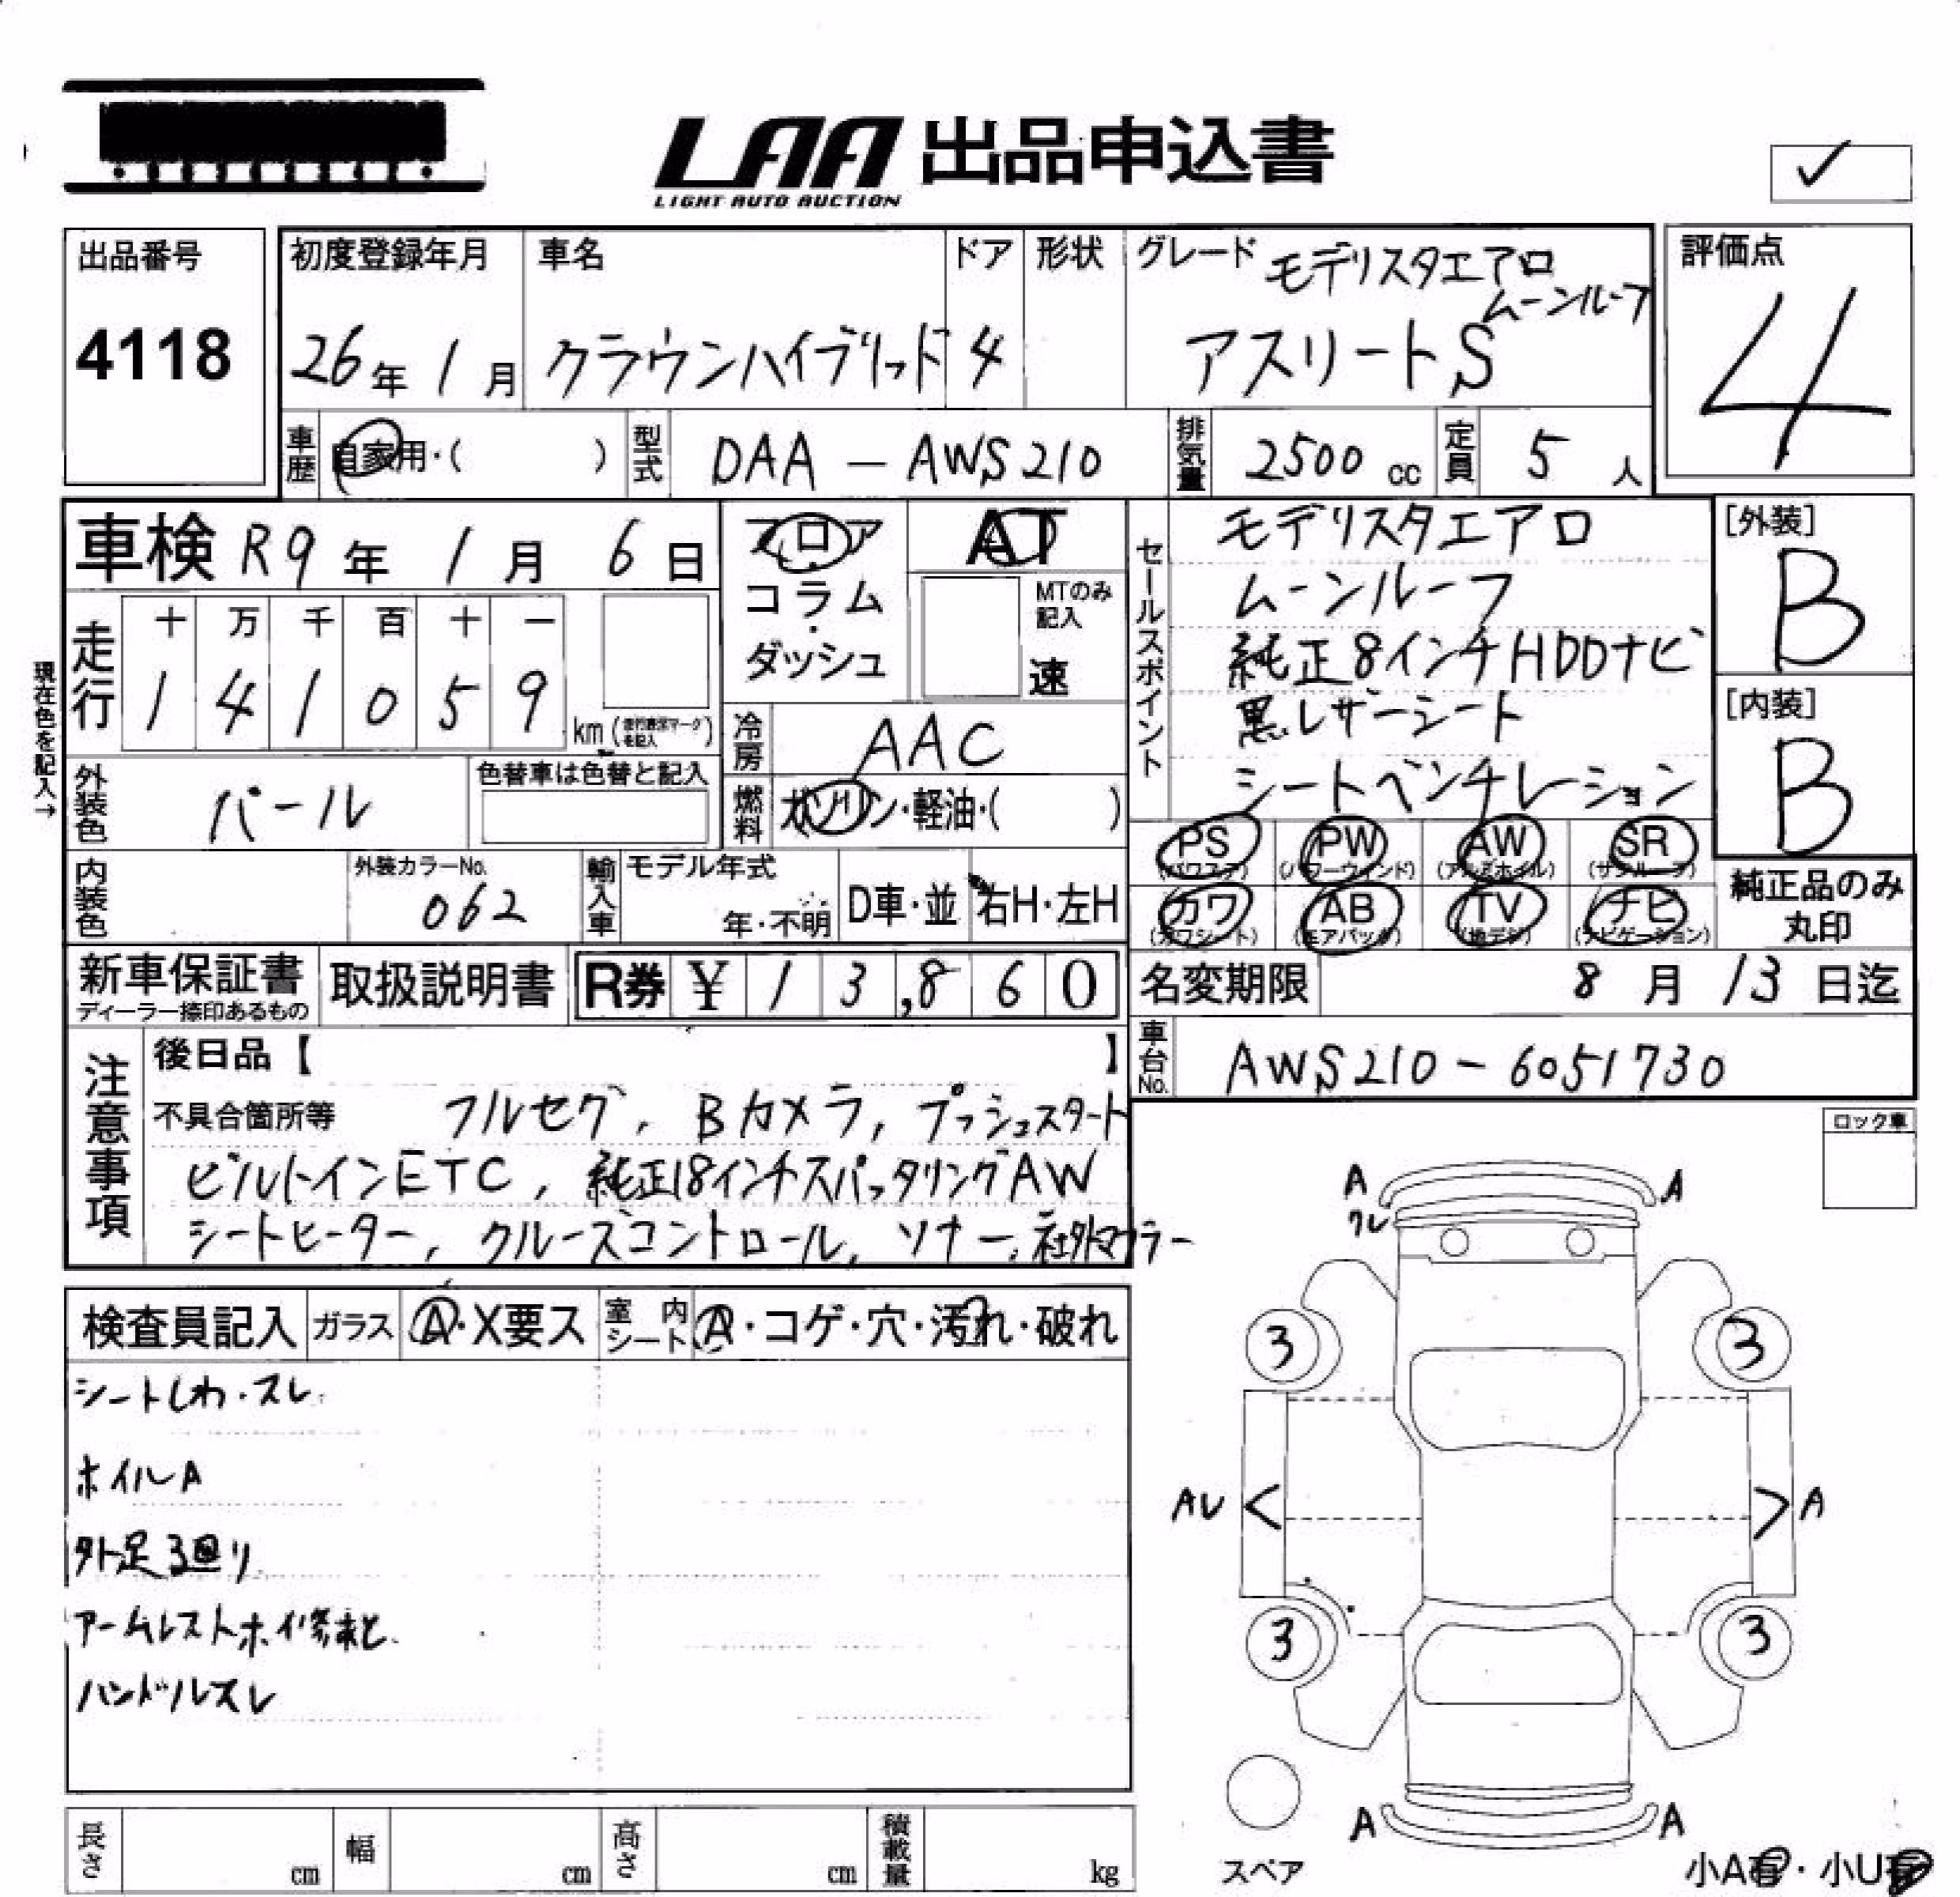 LAA 出品申込書
LIGHT AUTO AUCTION
✓
出品番号
4118
初度登録年月
26年 1月
車名
クラウンハイブリッド
ドア
4
形状
グレード モデリスタエアロ
ムーンルーフ
アスリートS
評価点
4
車歴 自家用・( )
型式 DAA-AWS210
排気量 2500cc
定員 5人
車検 R9年 1月 6日
フロア
コラム
・
ダッシュ
AT
MTのみ
記入
速
セールスポイント
モデリスタエアロ
ムーンルーフ
純正8インチHDDナビ
黒レザーシート
シートベンチレーション
[外装]
B
[内装]
B
現在色を記入→
走行
十 万 千 百 十 一
1 4 1 0 5 9
km
冷房 AAC
燃料 ガソリン・軽油・( )
外装色 パール
色替車は色替と記入
内装色
外装カラーNo.
062
輸入車
モデル年式
年・不明
D車・並
右H・左H
PS PW AW SR
(パワステ) (パワーウインド) (アルミホイル) (サンルーフ)
カワ AB TV ナビ
(カワシート) (エアバッグ) (地デジ) (ナビゲーション)
純正品のみ
丸印
新車保証書
ディーラー捺印あるもの
取扱説明書
R券 ¥13,860
名変期限 8月13日迄
車台No. AWS210-6051730
注意事項
後日品【 】
不具合箇所等 フルセグ, Bカメラ, プッシュスタート
ビルトインETC, 純正18インチスパッタリングAW
シートヒーター, クルーズコントロール, ソナー, 社外マフラー
ロック車
検査員記入 ガラス A・X要ス 室内シート A・コゲ・穴・汚れ・破れ
シートしわ・スレ
ホイルA
外足3廻り
ハンドルスレ
A A
ワレ
3 3
AU < > A
3 3
A A
スペア
小A有・小U有
長さ cm 幅 cm 高さ cm 積載量 kg